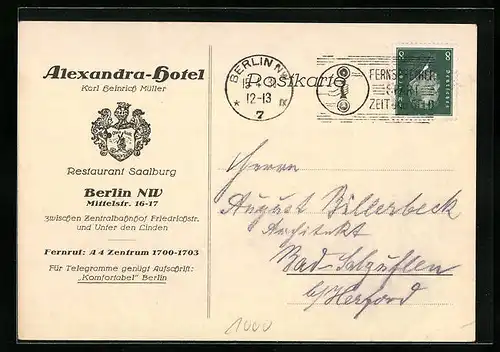 Alexandra-Hotel
Karl Heinrich Müller
Restaurant Saalburg
Berlin NW
Mittelstr. 16-17
zwischen Zentralbahnhof Friedrichstr.
und Unter den Linden
Fernruf: A 4 Zentrum 1700-1703
Für Telegramme genügt Aufschrift:
„Komfortabel" Berlin
Postkarte
BERLIN NW
12-13
* 7
FERNSPRECHER
SPART
ZEIT UND GELD
8 8
Herrn
August Billerbeck
Architekt
Bad-Salzuflen
b/Herford
1000